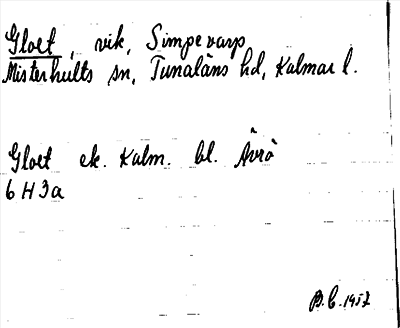 Gloet, vik, Simpevarp
Misterhults sn, Tunaläns hd, Kalmar l.
Gloet ek. Kalm. bl. Ävrö
6 H 3a
B.C. 1957